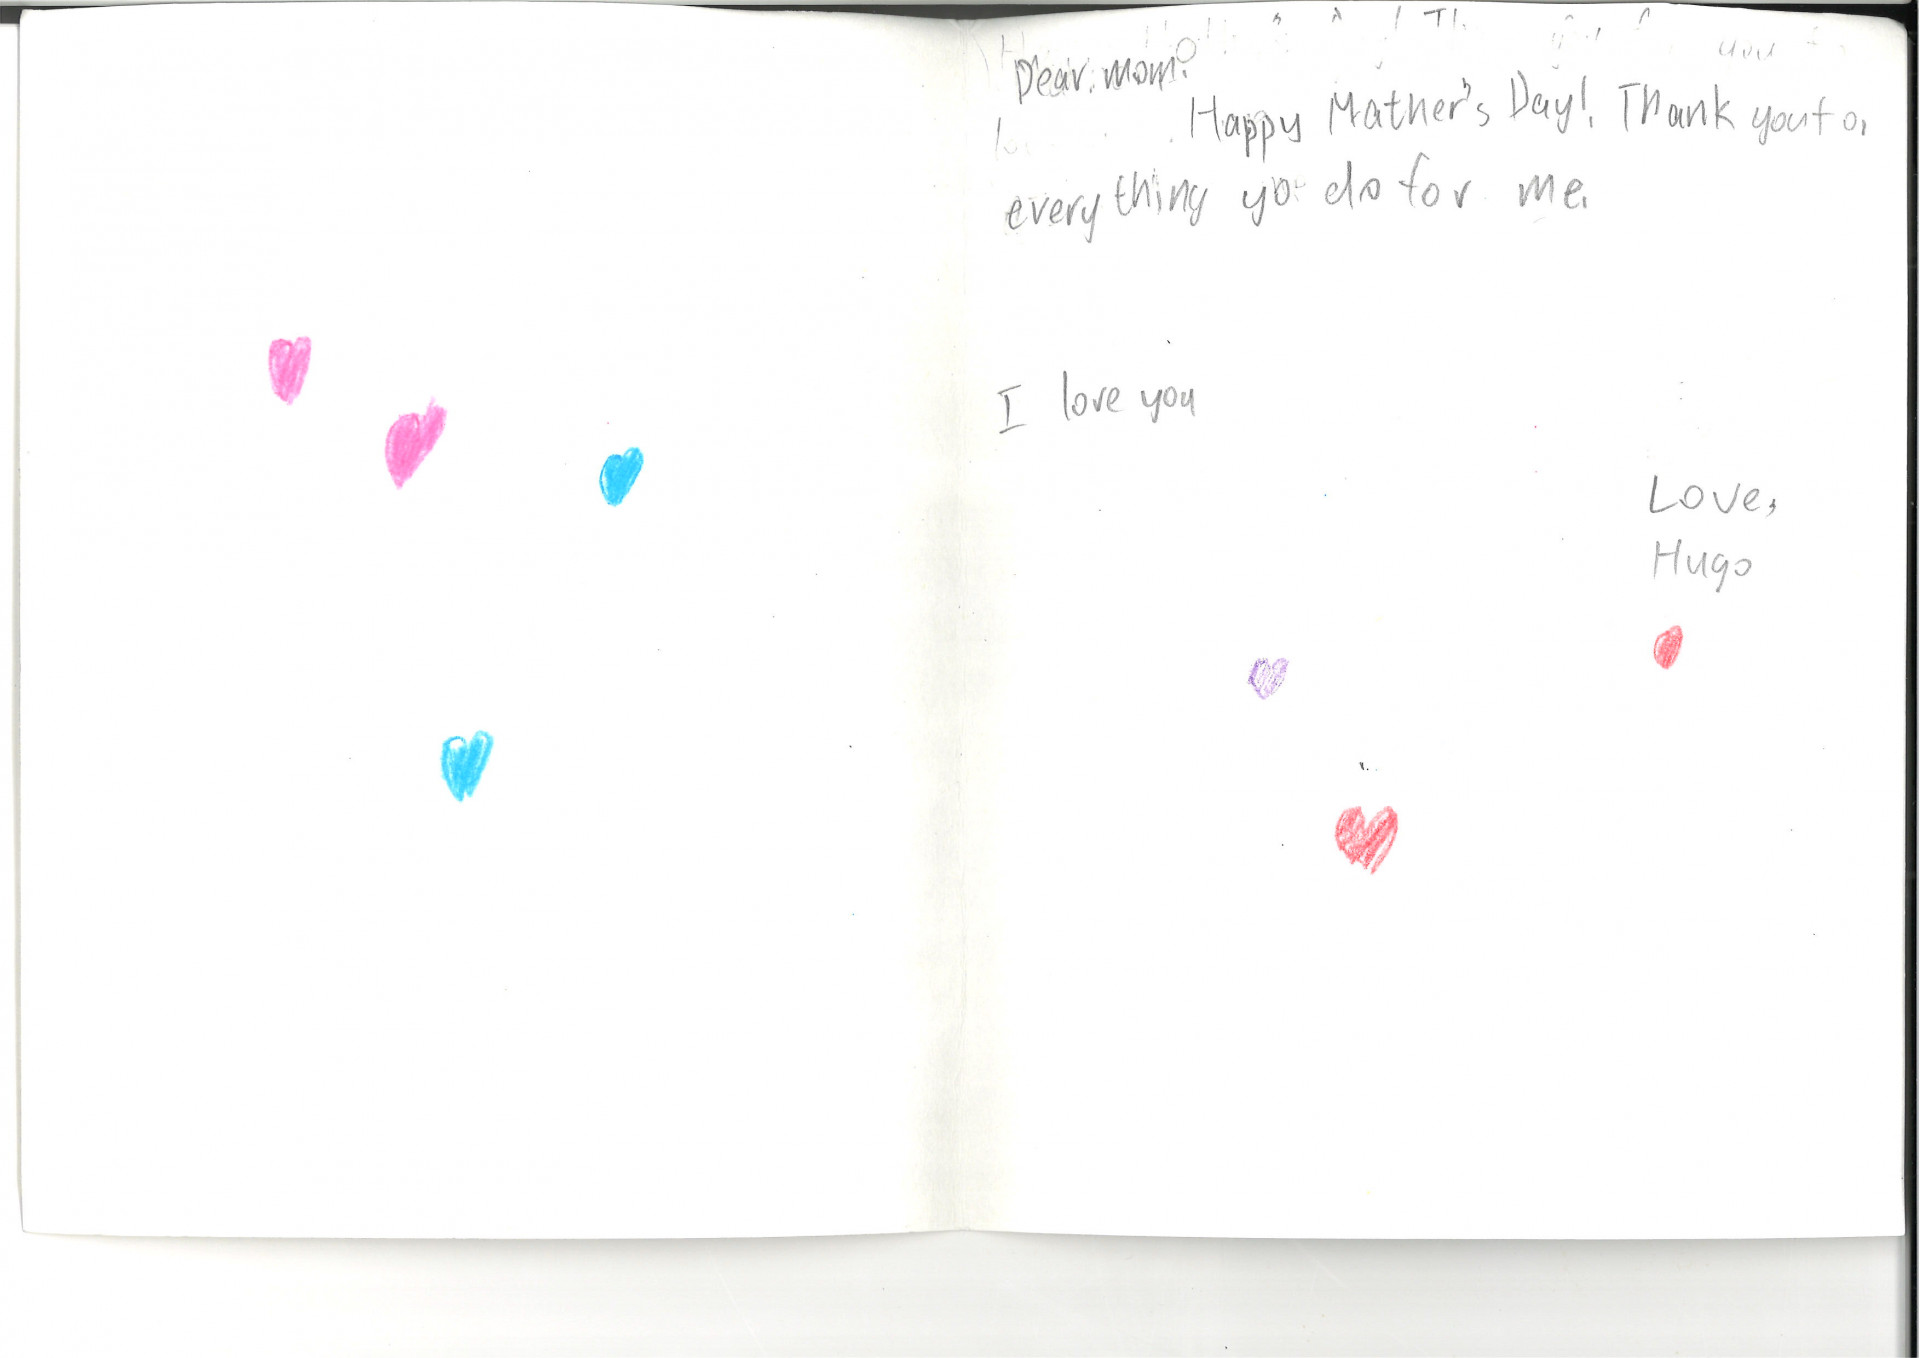 Dear mom:
Happy Mather's Day! Thank you fo
everything yo do for me.
I love you
Love,
Hugo